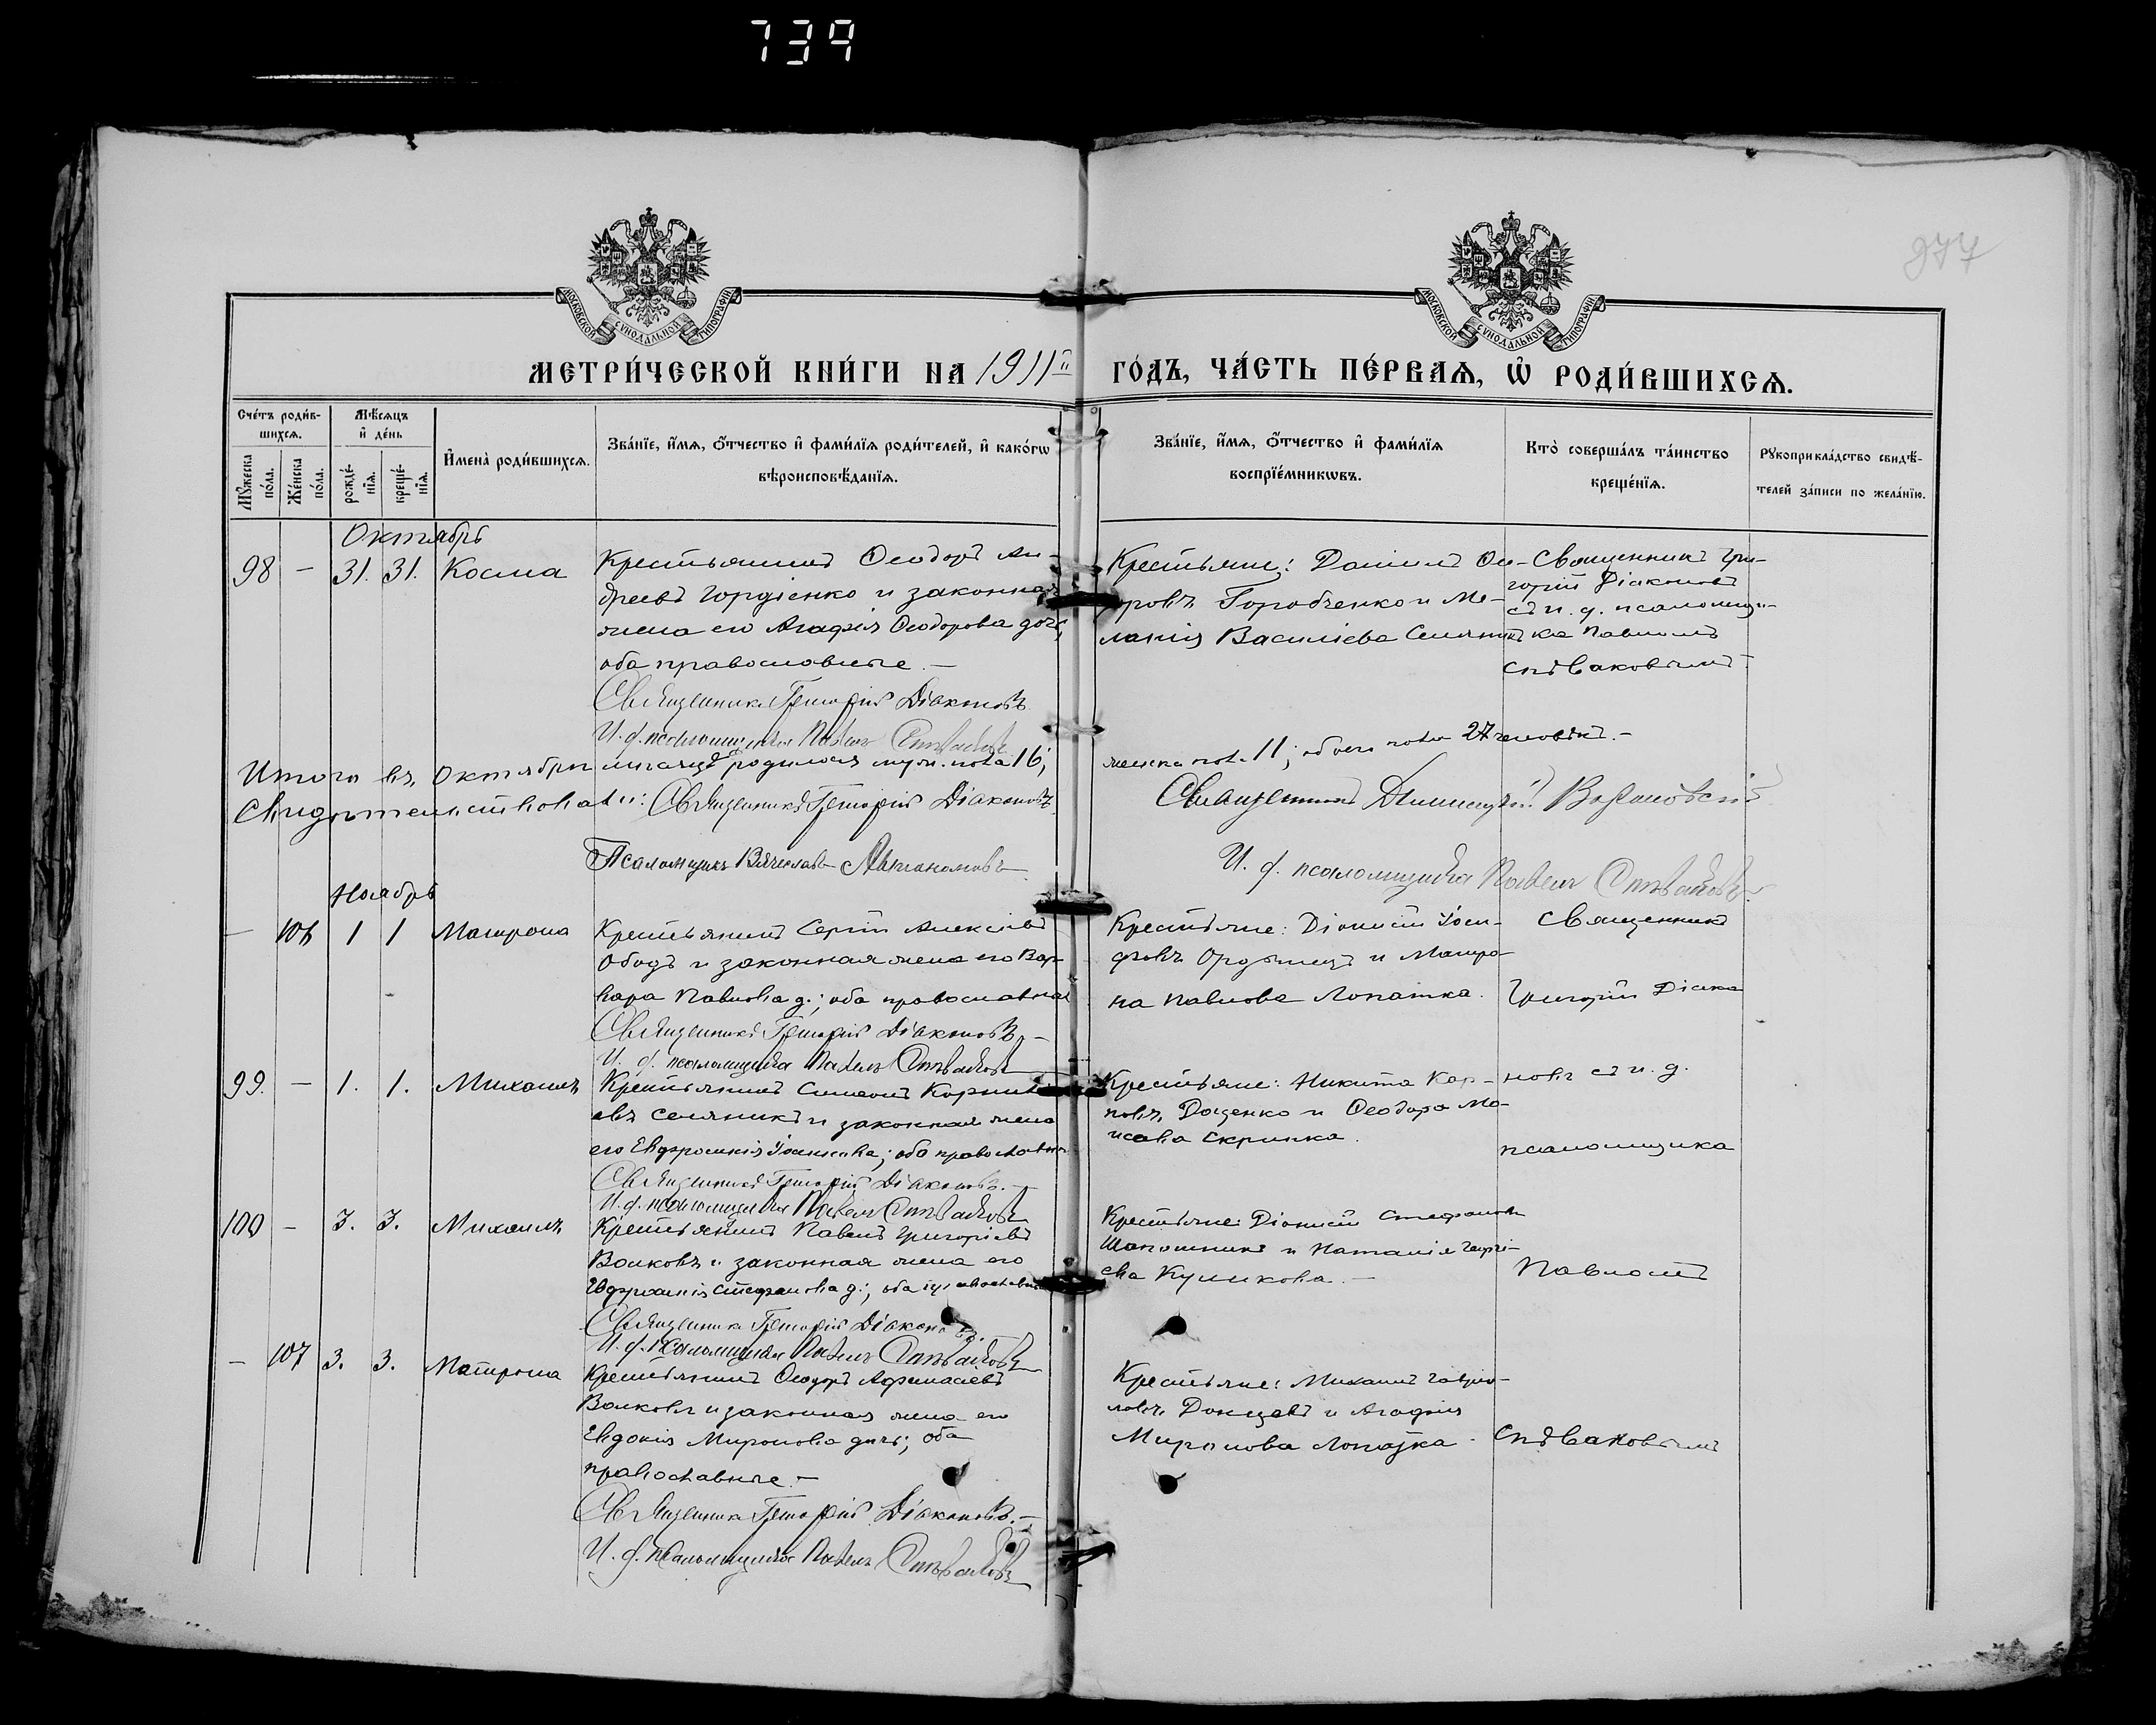 739
977
МОСКОВСКОЙ СУНОДАЛЬНОЙ ТИПОГРАФІИ
МОСКОВСКОЙ СУНОДАЛЬНОЙ ТИПОГРАФІИ
МЕТРИ́ЧЕСКОЙ КНИ́ГИ НА 1911й ГО́ДЪ, ЧА́СТЬ ПЕ́РВАѦ, Ѡ҆ РОДИ́ВШИХСѦ.
Сче́тъ роди́в-
шихсѧ.
Мѣ́сѧцъ
и҆ де́нь
Мꙋ́жеска по́ла.
Же́нска по́ла.
рожде́-
нїѧ.
креще́-
нїѧ.
И҆мена̀ роди́вшихсѧ.
Зва́нїе, и҆́мѧ, ѻ҆́тчество и҆ фами́лїѧ роди́телей, и҆ како́гѡ
вѣроисповѣ́данїѧ.
Зва́нїе, и҆́мѧ, ѻ҆́тчество и҆ фами́лїѧ
воспрїе́мникѡвъ.
Кто̀ соверша́лъ та́инство
креще́нїѧ.
Рꙋкоприкла́дство свидѣ́-
телей за́писи по жела́нїю.
Октябрь
98 — 31. 31. Косма
Крестьянинъ Ѳеодоръ Ан-
дреевъ Гордіенко и законная
жена его Агафія Ѳеодорова дочь,
оба православные. —
Священникъ Григорій Діаконовъ
И. д. псаломщика Павелъ Спѣваковъ
Крестьяне: Даніилъ Ѳео-
доровъ Горобченко и Ме-
ланія Василіева Селяникъ
Священникъ Гри-
горій Діаконовъ
съ и. д. псаломщи-
ка Павломъ
Спѣваковымъ
Итого въ Октябрѣ мѣсяцѣ родилось муж. пола 16; женска пол. 11; обоего пола 27 человѣкъ. —
Свидѣтельствовали: Священникъ Григорій Діаконовъ
Священникъ Димитрій
Псаломщикъ Вячеславъ
И. д. псаломщика Павелъ Спѣваковъ
Ноябрь
— 106 1 1 Матрона
Крестьянинъ Сергій Алексіевъ
Ободъ и законная жена его Вар-
вара Павлова д.; оба православные
Священникъ Григорій Діаконовъ. —
И. д. псаломщика Павелъ Спѣваковъ
Крестьяне: Діонисій Іоси-
фовъ Ордынецъ и Матро-
на Павлова Лопатка.
Священникъ
Григорій Діако
99. — 1. 1. Михаилъ
Крестьянинъ Симеонъ Корнил-
евъ Селяникъ и законная жена
его Евфросинія Іоаннова; оба православн.
Священникъ Григорій Діаконовъ. —
И. д. псаломщика Павелъ Спѣваковъ
Крестьяне: Никита Кар-
повъ Доценко и Ѳеодора Мо-
исеева Скрипка.
новъ съ и. д.
псаломщика
100 — 3. 3. Михаилъ
Крестьянинъ Павелъ Григоріевъ
Волковъ и законная жена его
Стефанова д.; оба православн.
Священникъ Григорій Діаконовъ. —
И. д. псаломщика Павелъ Спѣваковъ
Крестьяне: Діонисій Стефановъ
Шапошникъ и Наталія Георгі-
ева Куликова. —
Павломъ
— 107 3. 3. Матрона
Крестьянинъ Ѳеодоръ Афанасіевъ
Волковъ и законная жена его
Евдокія Миронова дочь; оба
православные. —
Священникъ Григорій Діаконовъ. —
И. д. псаломщика Павелъ Спѣваковъ
Крестьяне: Михаилъ Гаврі-
ловъ Донцовъ и Агафія
Миронова Лопатка.
Спѣваковымъ